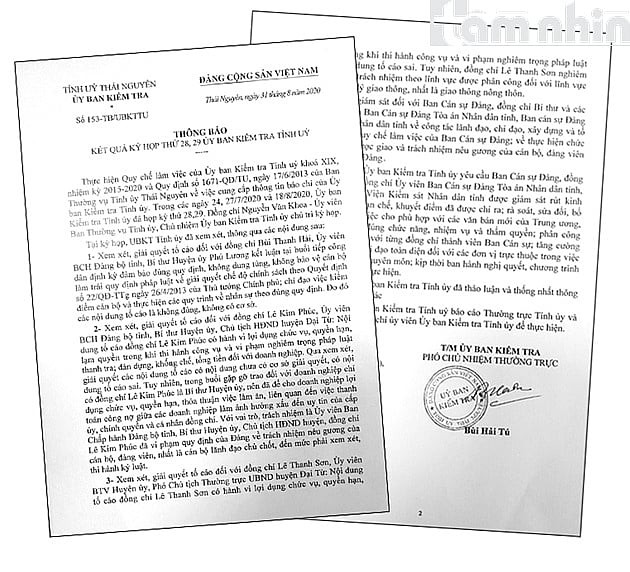 TỈNH UỶ THÁI NGUYÊN
ỦY BAN KIỂM TRA
Số 153-TB/UBKTTU
ĐẢNG CỘNG SẢN VIỆT NAM
Thái Nguyên, ngày 31 tháng 8 năm 2020
THÔNG BÁO
KẾT QUẢ KỲ HỌP THỨ 28, 29 ỦY BAN KIỂM TRA TỈNH UỶ
Thực hiện Quy chế làm việc của Ủy ban Kiểm tra Tỉnh uỷ khoá XIX,
nhiệm kỳ 2015-2020 và Quy định số 1671-QĐ/TU, ngày 17/6/2013 của Ban
Thường vụ Tỉnh ủy Thái Nguyên về việc cung cấp thông tin báo chí của Ủy
ban Kiểm tra Tỉnh ủy. Trong các ngày 24, 27/7/2020 và 18/8/2020, Ủy ban
Kiểm tra Tỉnh ủy đã họp kỳ thứ 28,29. Đồng chí Nguyễn Văn Khoa - Ủy viên
Ban Thường vụ Tỉnh ủy, Chủ nhiệm Ủy ban Kiểm tra Tỉnh ủy chủ trì kỳ họp.
Tại kỳ họp, UBKT Tỉnh ủy đã xem xét, thông qua các nội dung sau:
1- Xem xét, giải quyết tố cáo đối với đồng chí Bùi Thanh Hải, Ủy viên
BCH Đảng bộ tỉnh, Bí thư Huyện ủy Phú Lương kết luận tại buổi tiếp công
dân định kỳ đảm bảo đúng quy định, không dung túng, không bảo vệ cán bộ
làm trái quy định pháp luật về giải quyết chế độ chính sách theo Quyết định
số 22/QĐ-TTg ngày 26/4/2013 của Thủ tướng Chính phủ; chỉ đạo việc kiểm
điểm cán bộ và thực hiện các quy trình về nhân sự theo đúng quy định. Do đó
các nội dung tố cáo là không đúng, không có cơ sở.
2- Xem xét, giải quyết tố cáo đối với đồng chí Lê Kim Phúc, Ủy viên
BCH Đảng bộ tỉnh, Bí thư Huyện ủy, Chủ tịch HĐND huyện Đại Từ: Nội
dung tố cáo đồng chí Lê Kim Phúc có hành vi lợi dụng chức vụ, quyền hạn,
lạm quyền trong khi thi hành công vụ và vi phạm nghiêm trọng pháp luật
thanh tra; dân dụng, khống chế, tống tiền đối với doanh nghiệp. Qua xem xét,
giải quyết các nội dung tố cáo có nội dung chưa có cơ sở giải quyết, có nội
dung tố cáo sai. Tuy nhiên, trong buổi gặp gỡ trao đổi với doanh nghiệp chỉ
có đồng chí Lê Kim Phúc là Bí thư Huyện ủy, nên đã để cho doanh nghiệp lợi
dụng chức vụ, quyền hạn, thỏa thuận việc làm ăn, liên quan đến việc thanh
toán công nợ giữa các doanh nghiệp làm ảnh hưởng xấu đến uy tín của cấp
ủy, chính quyền và cá nhân đồng chí. Với vai trò, trách nhiệm là Ủy viên Ban
Chấp hành Đảng bộ tỉnh, Bí thư Huyện ủy, Chủ tịch HĐND huyện, đồng chí
Lê Kim Phúc đã vi phạm quy định của Đảng về trách nhiệm nêu gương của
cán bộ, đảng viên, nhất là cán bộ lãnh đạo chủ chốt, đến mức phải xem xét,
thi hành kỷ luật.
3- Xem xét, giải quyết tố cáo đối với đồng chí Lê Thanh Sơn, Ủy viên
BTV Huyện ủy, Phó Chủ tịch Thường trực UBND huyện Đại Từ: Nội dung
tố cáo đồng chí Lê Thanh Sơn có hành vi lợi dụng chức vụ, quyền hạn,
khi thi hành công vụ và vi phạm nghiêm trọng pháp luật
dung tố cáo sai. Tuy nhiên, đồng chí Lê Thanh Sơn nghiêm
trách nhiệm theo lĩnh vực được phân công đối với lĩnh vực
giao thông, nhất là giao thông nông thôn.
giám sát đối với Ban Cán sự Đảng, đồng chí Bí thư và các
Ban Cán sự Đảng Tòa án Nhân dân tỉnh, Ban Cán sự Đảng
nhân dân tỉnh về công tác lãnh đạo, chỉ đạo, xây dựng và tổ
quy chế làm việc của Ban Cán sự Đảng; về thực hiện các quy
được giao và trách nhiệm nêu gương của cán bộ, đảng viên
Đảng.
Ủy ban Kiểm tra Tỉnh ủy yêu cầu Ban Cán sự Đảng, đồng
chí Ủy viên Ban Cán sự Đảng Tòa án Nhân dân tỉnh,
Viện Kiểm sát Nhân dân tỉnh được giám sát rút kinh
chế, khuyết điểm đã được chỉ ra; rà soát, sửa đổi, bổ
việc cho phù hợp với các văn bản mới của Trung ương,
đúng chức năng, nhiệm vụ và thẩm quyền; phân công
với từng đồng chí thành viên Ban Cán sự; tăng cường
đạo toàn diện đối với các đơn vị trực thuộc trong việc
chuyên môn; kịp thời ban hành nghị quyết, chương trình
thực hiện.
Ủy ban Kiểm tra Tỉnh ủy đã thảo luận và thống nhất thông
khác
Kiểm tra Tỉnh uỷ báo cáo Thường trực Tỉnh ủy và
chí ủy viên Ủy ban Kiểm tra Tỉnh ủy để thực hiện.
T/M ỦY BAN KIỂM TRA
PHÓ CHỦ NHIỆM THƯỜNG TRỰC
ỦY BAN
KIỂM TRA
Bùi Hải Tú
2